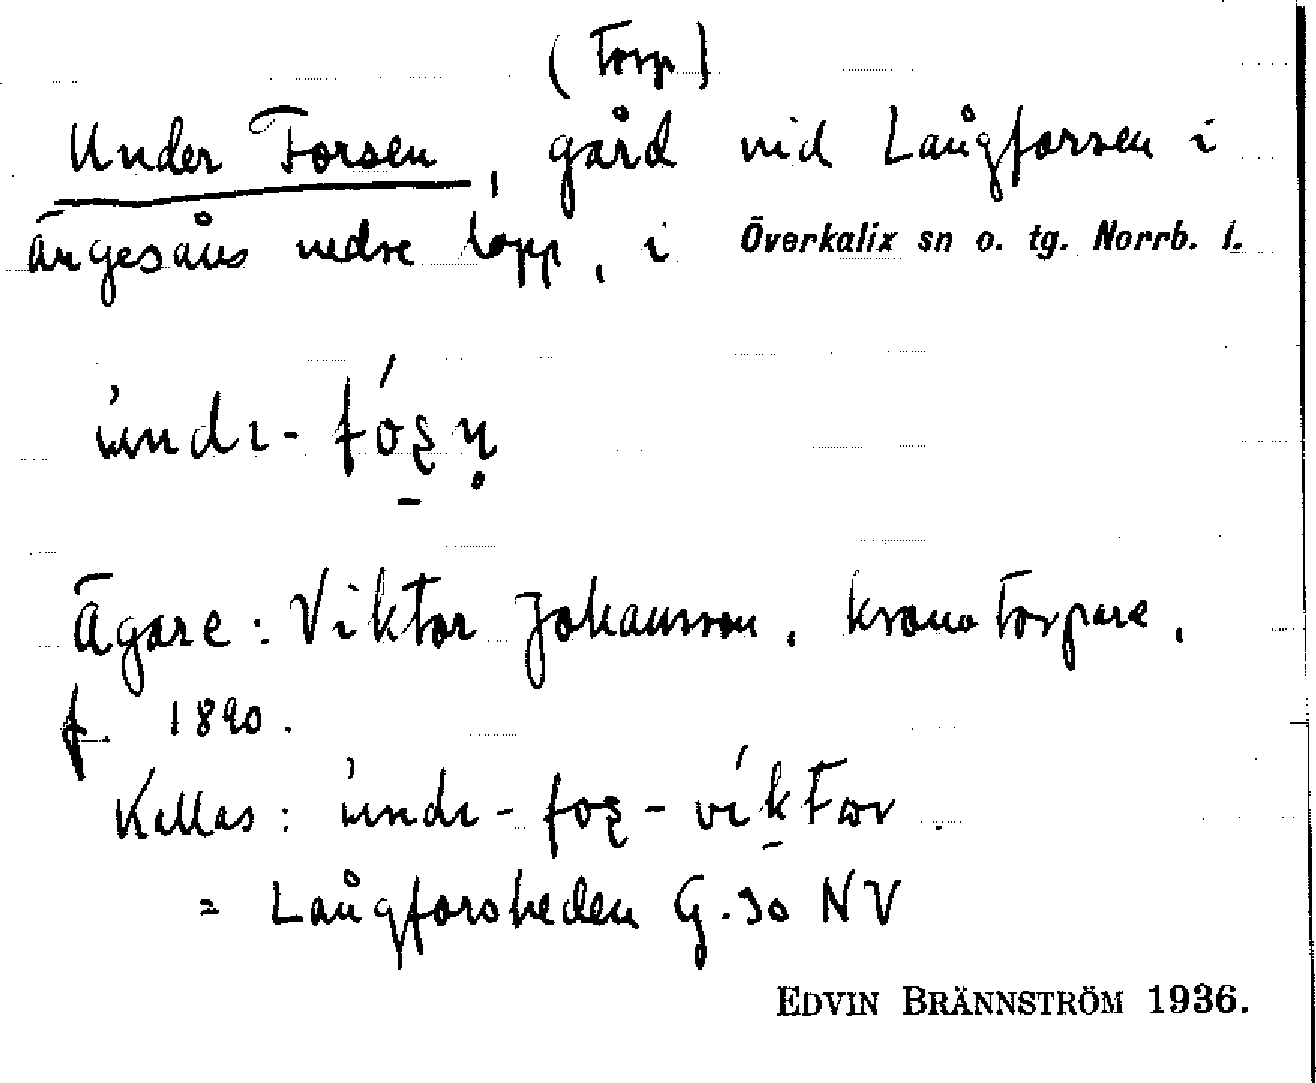 (Torp)
Under Forsen, gård vid Långforsen i
ängesåns nedre lopp, i Överkalix sn o. tg. Norrb. l.
Ägare: Viktor Johansson, kronotorpare,
f. 1890.
Kallas:
= Långforsheden G.30 NV
EDVIN BRÄNNSTRÖM 1936.